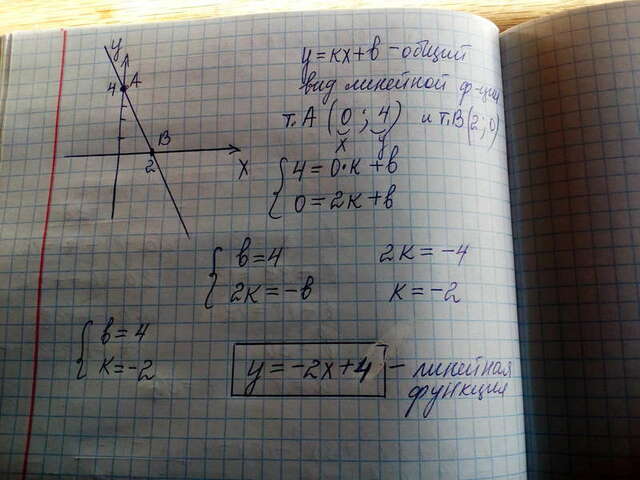 y
4 A
B
2 x
y = кx + в – общий
вид линейной ф-ции
т. A (0 ; 4) и т. B (2 ; 0)
x y
{ 4 = 0·к + в
0 = 2к + в
{ в = 4 2к = -4
2к = -в к = -2
{ в = 4
к = -2
y = -2x + 4 – линейная
функция